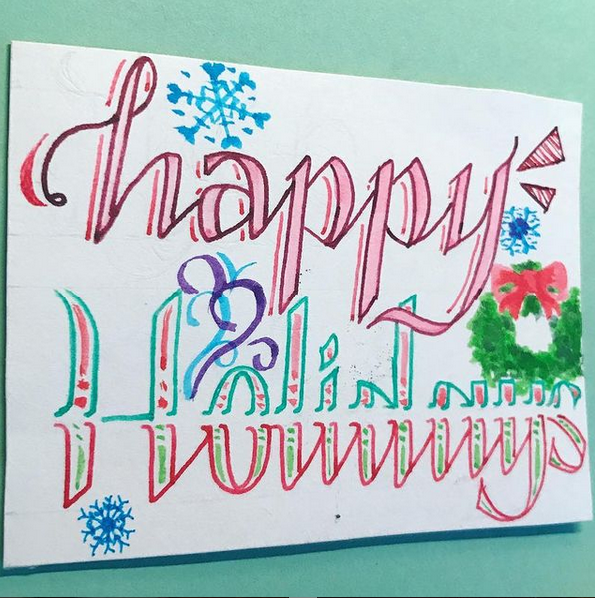 happy
Holidays